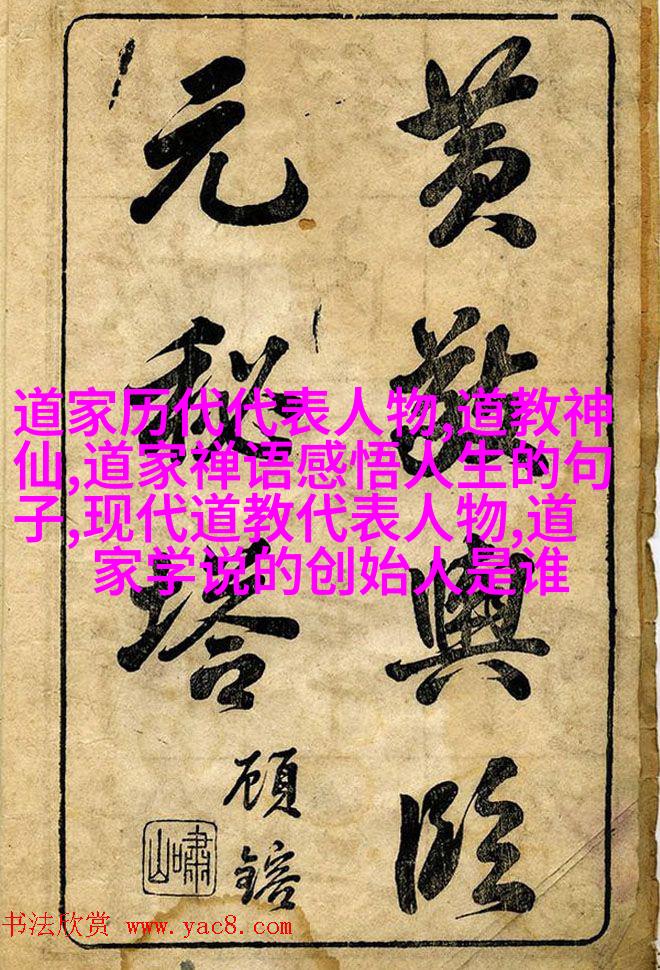 黄敬輿臨
元秘塔
顧鎔
嘯山
道家历代代表人物,道教神
仙,道家禅语感悟人生的句
子,现代道教代表人物,道
家学说的创始人是谁
书法欣赏 www.yac8.com